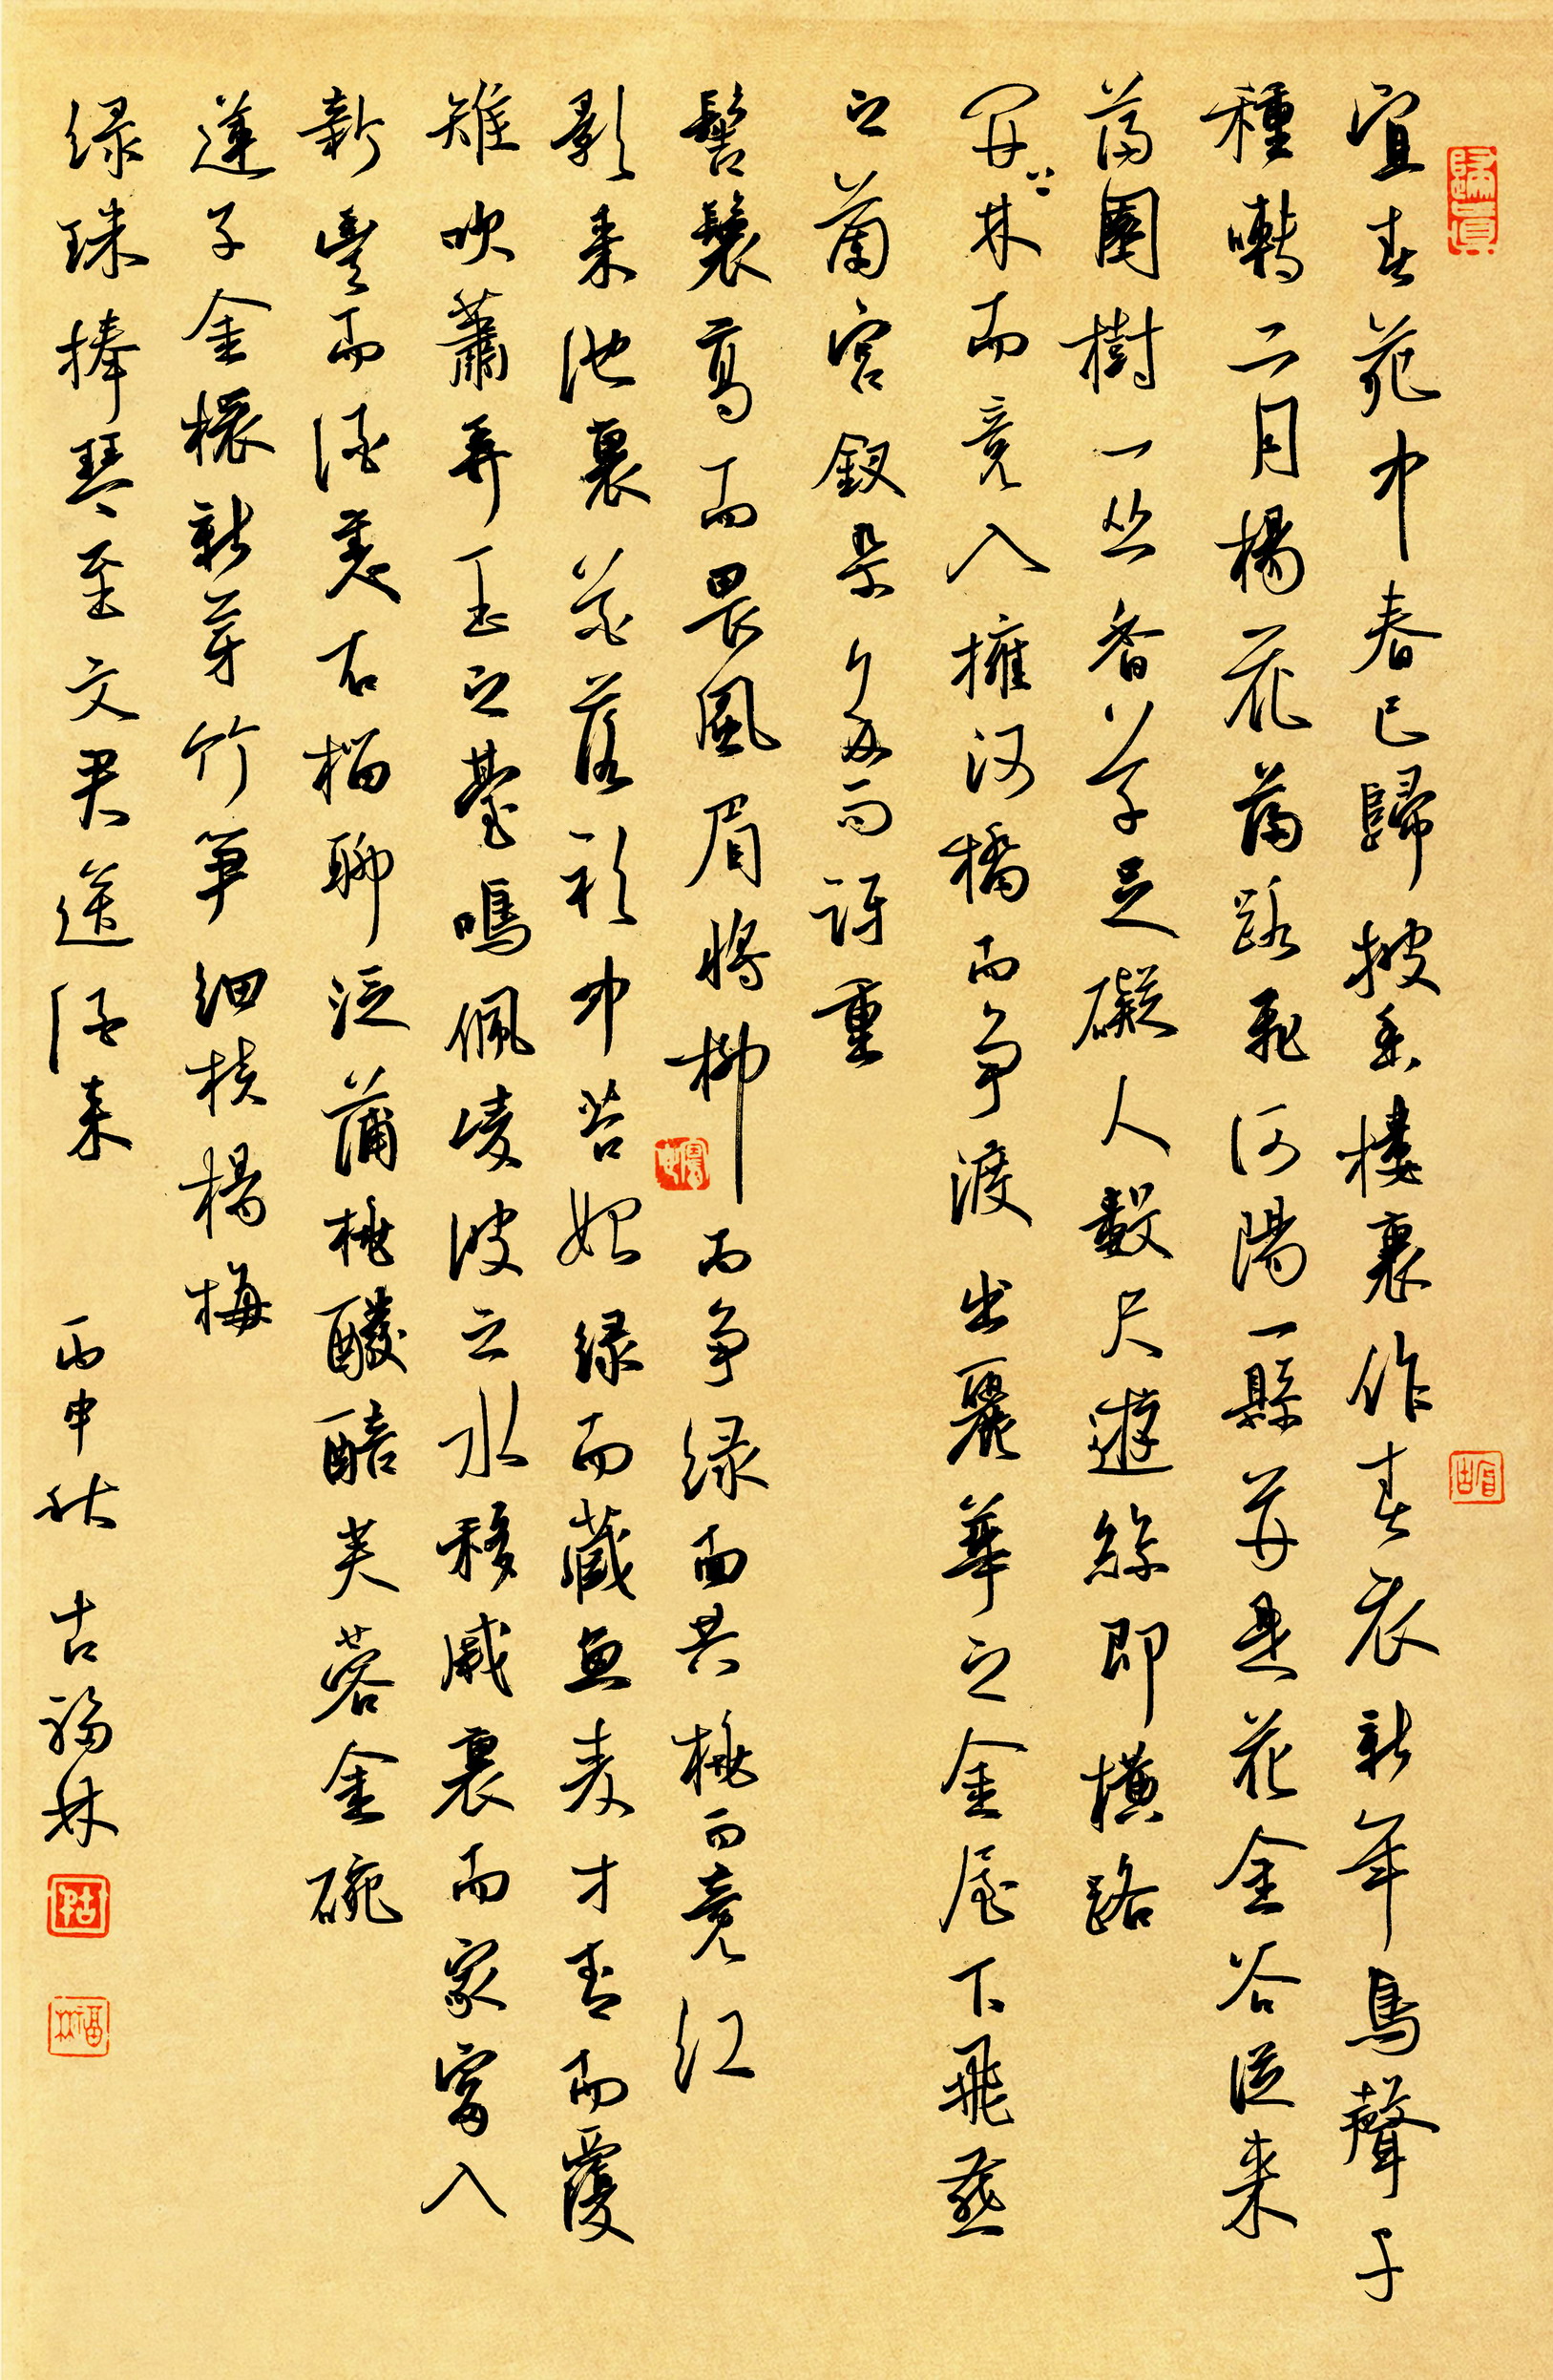 宜春苑中春已歸披香樓裏作春衣新年鳥聲千
種囀二月楊花滿路飛河陽一縣並是花金谷從來
滿園樹一丛香草足礙人數尺遊絲即橫路
開林而竞入擁河橋而爭渡出麗華之金屋下飛燕
之蘭宫釵朵多而訝重
髻鬟高而畏風眉將柳而爭绿面共桃而竞红
影来池裏花落衫中苔始绿而藏魚麦才青而覆
雉吹蕭弄玉之臺鳴佩凌波之水移戚裏而家富入
新豐而酒美石榴聊泛蒲桃醱醅芙蓉金碗
蓮子金新芽竹笋细核楊梅
绿珠捧琴至文君送酒来
丙申秋 古福林